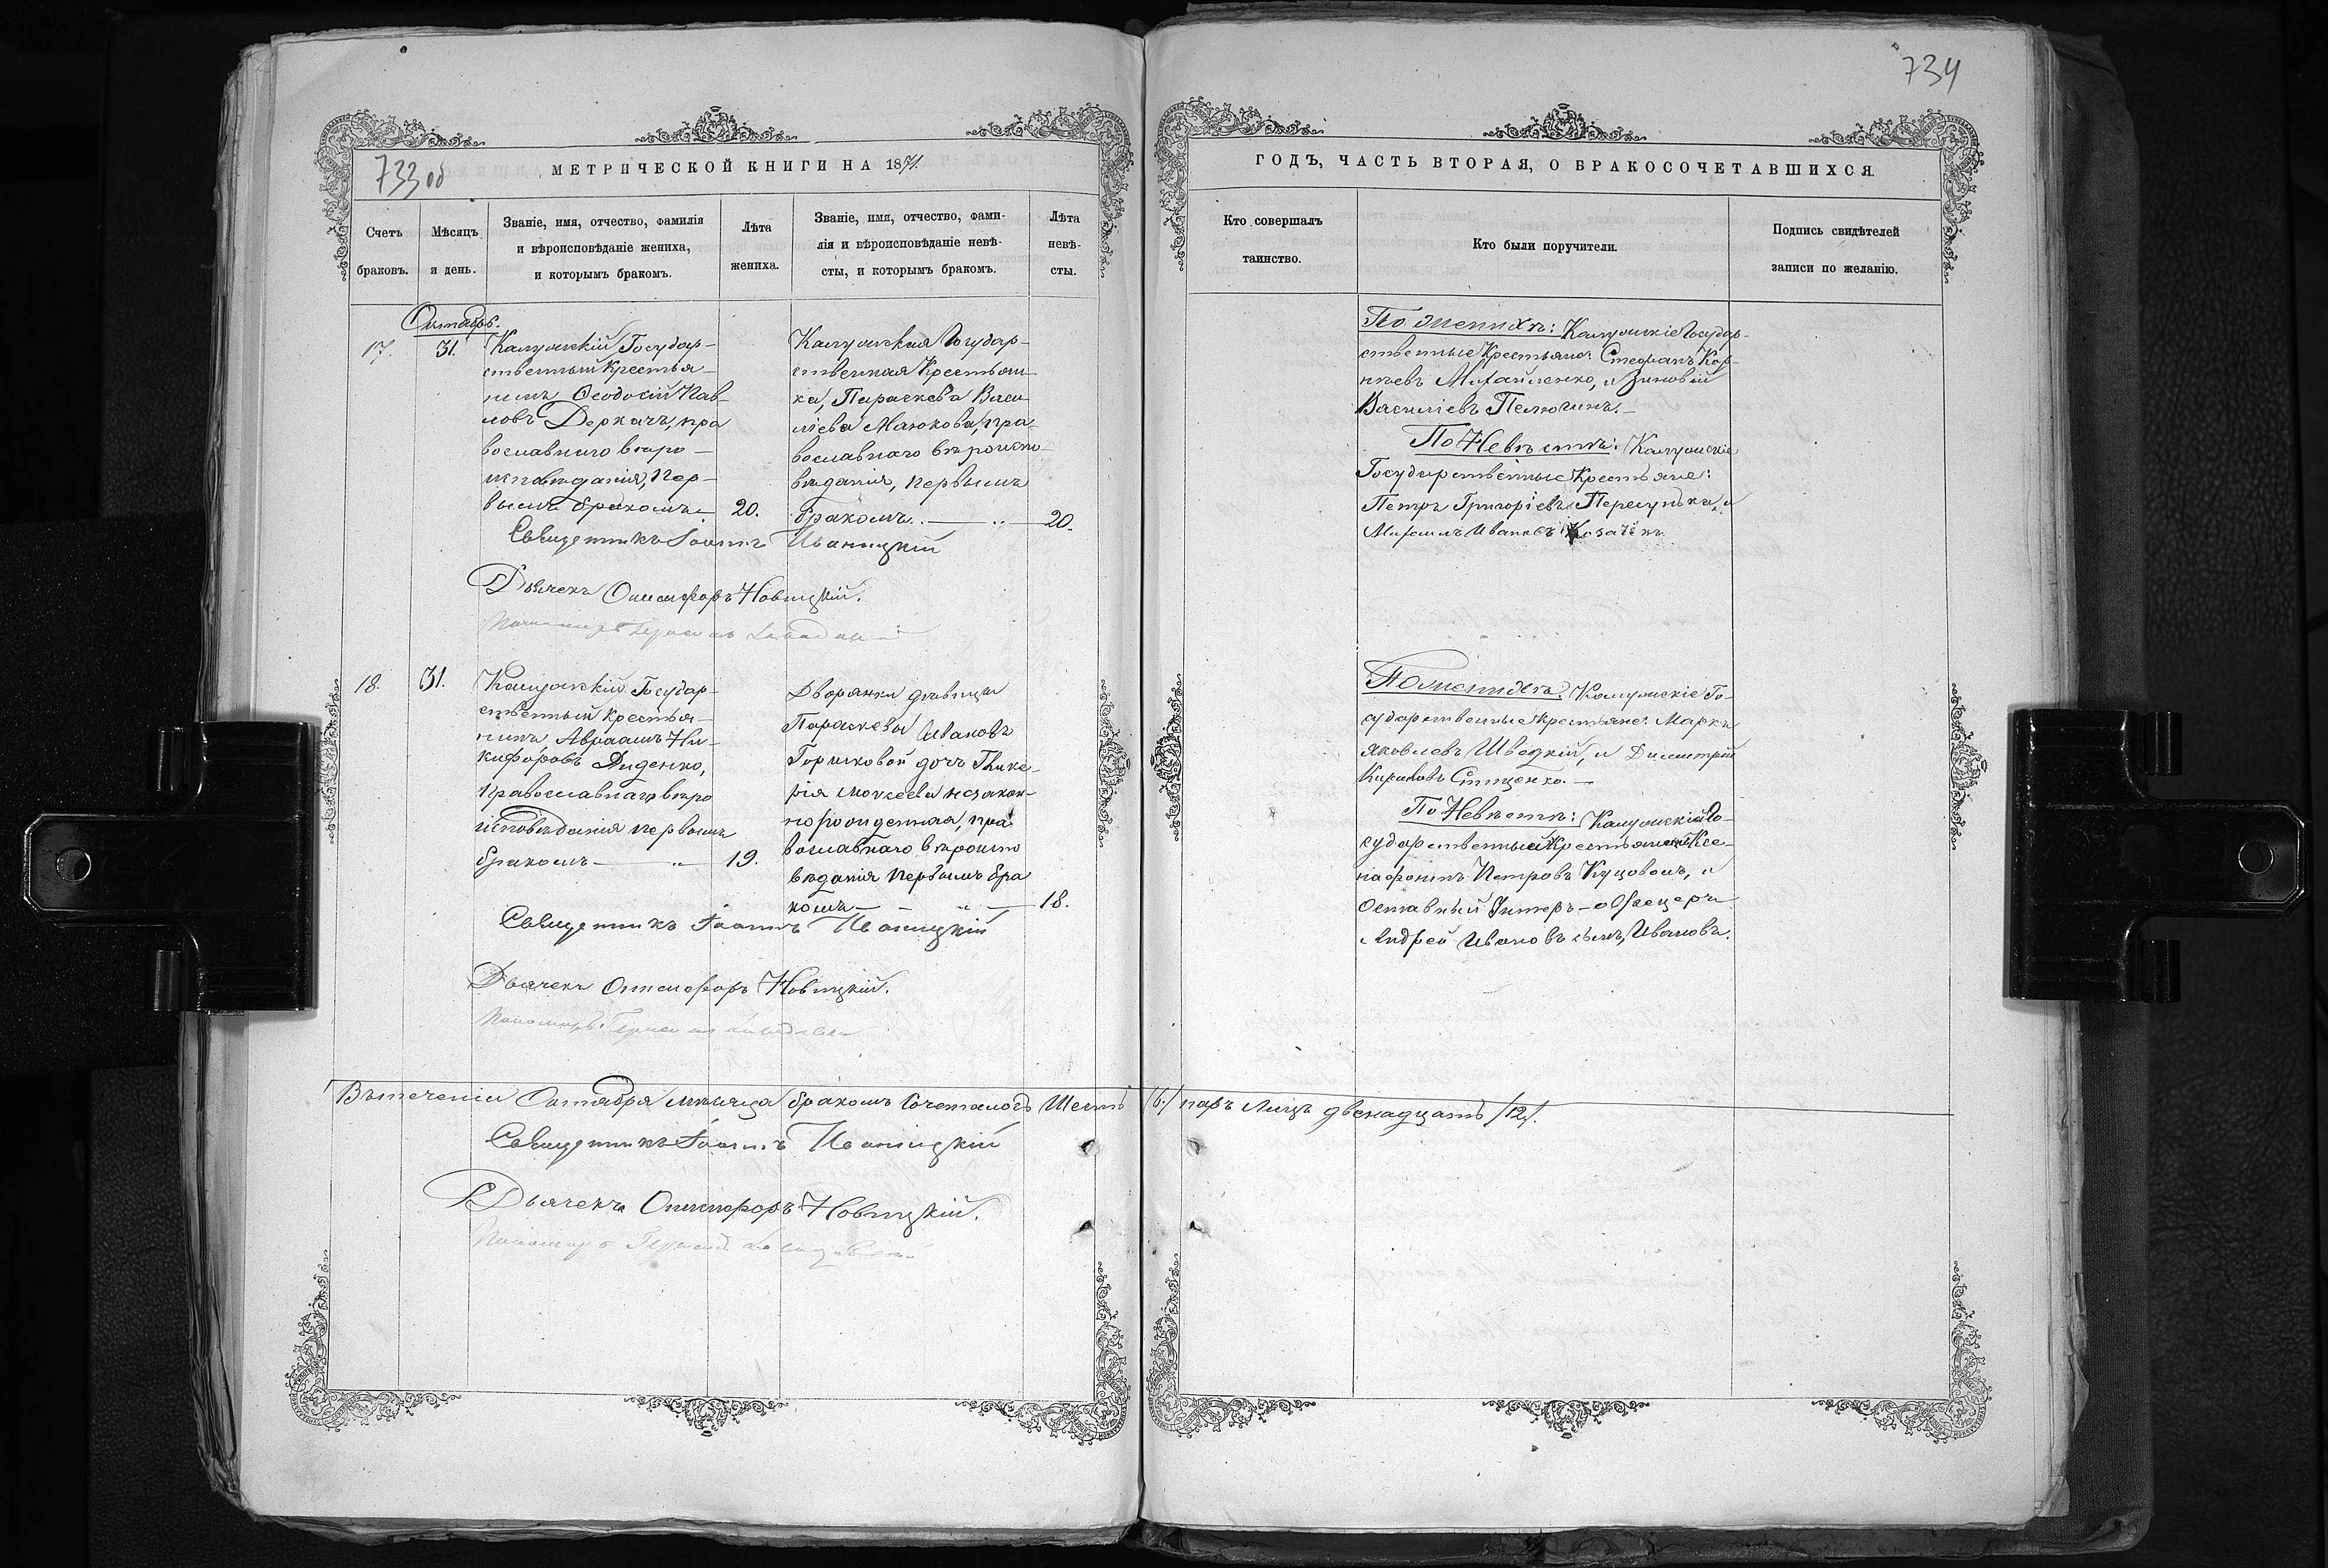 734
733 об
МЕТРИЧЕСКОЙ КНИГИ НА 1871
ГОДЪ, ЧАСТЬ ВТОРАЯ, О БРАКОСОЧЕТАВШИХСЯ.
Счетъ браковъ.
Мѣсяцъ и день.
Званіе, имя, отчество, фамилія
и вѣроисповѣданіе жениха,
и которымъ бракомъ.
Лѣта
жениха.
Званіе, имя, отчество, фами-
лія и вѣроисповѣданіе невѣ-
сты, и которымъ бракомъ.
Лѣта
невѣ-
сты.
Кто совершалъ
таинство.
Кто были поручители.
Подпись свидѣтелей
записи по желанію.
Октябрь.
17.
31.
Государ-
ственный Крестья-
нинъ Ѳеодосій Пав-
ловъ Деркачъ, пра
вославнаго вѣро-
исповѣданія, пер-
вымъ бракомъ
20.
Государ-
ственная Крестьян-
ка, Параскева Васи-
ліева пра-
вославнаго вѣроиспо-
вѣданія, первымъ
бракомъ.
20.
Священникъ Іоаннъ Иваницкій
Дьячекъ Онисифоръ Новицкій.
По женихѣ: Государ-
ственные Крестьяне: Стефанъ Кор-
нѣевъ Михайленко, и Зиновій
Василіевъ
По Невѣстѣ:
Государственные Крестьяне:
Петръ Григоріевъ и
Ивановъ Козачёкъ.
18.
31.
Государ-
ственный Крестья-
нинъ Авраамъ Ни-
кифоровъ Диденко,
православнаго вѣро
исповѣданія первымъ
бракомъ
19.
Дворянки дѣвицы
Параскевы Ивановъ
Горшковой дочь Глике-
рія Моисеева незакон-
норожденная, пра
вославнаго вѣроиспо
вѣданія первымъ бра
комъ
18.
Священникъ Іоаннъ Иваницкій
Дьячекъ Онисифоръ Новицкій.
По женихѣ: Го-
сударственные Крестьяне: Маркъ
Яковлевъ Шведкій, и Димитрій
Кириловъ
По Невѣстѣ: Го-
сударственный Крестьянинъ Ксе-
нафонтъ Петровъ и
Оставный Унтеръ-офецеръ
Андрей Ивановъ сынъ, Ивановъ.
Въ теченіи Октября мѣсяца бракомъ сочеталось Шесть /6./ паръ лицъ двенадцать /12/.
Священникъ Іоаннъ Иваницкій
Дьячекъ Онисифоръ Новицкій.